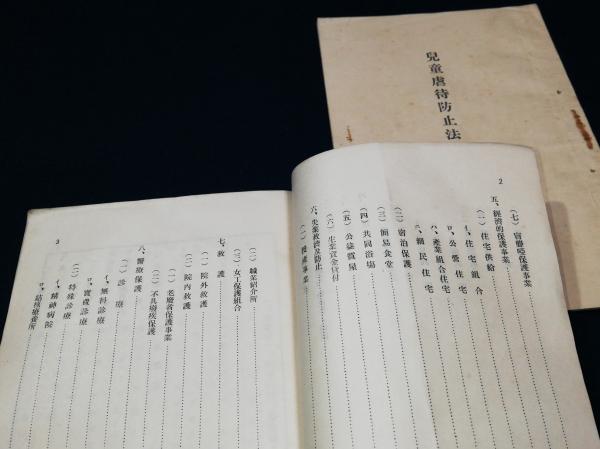 兒童虐待防止法
2
(七) 盲聾啞保護事業
五、經濟的保護事業
(一) 住宅供給
イ、住宅組合
ロ、公營住宅
ハ、產業組合住宅
ニ、細民住宅
(二) 宿泊保護
(三) 簡易食堂
(四) 共同浴場
(五) 公益質屋
(六) 生業資金貸付
六、失業救濟及防止
(一) 授產事業
3
(二) 職業紹介所
(三) 女工保護組合
七、救護
(一) 院外救護
(二) 院内救護
(一) 老廢者保護事業
(二) 不具癈疾保護
八、醫療保護
(一) 診療
イ、無料診療
ロ、實費診療
(二) 特殊診療
イ、精神病院
ロ、結核療養所